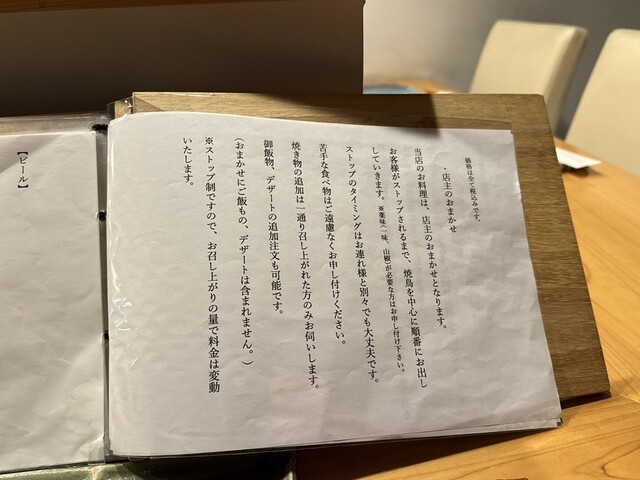 価格は全て税込みです。
・店主のおまかせ
当店のお料理は、店主のおまかせとなります。
お客様がストップされるまで、焼鳥を中心に順番にお出し
していきます。※薬味(一味、山椒)が必要な方はお申し付け下さい。
ストップのタイミングはお連れ様と別々でも大丈夫です。
苦手な食べ物はご遠慮なくお申し付けください。
焼き物の追加は一通り召し上がれた方のみお伺いします。
御飯物、デザートの追加注文も可能です。
(おまかせにご飯もの、デザートは含まれません。)
※ストップ制ですので、お召し上がりの量で料金は変動
いたします。
【ビール】